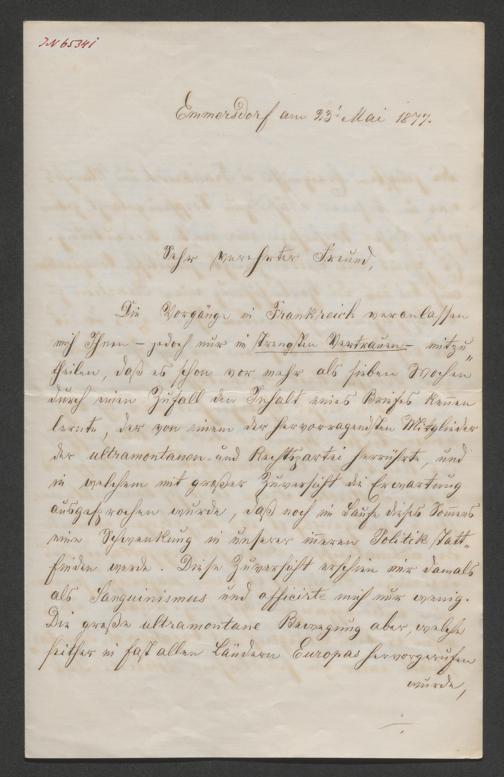 JN 65341
Emmersdorf am 23t Mai 1877.
Sehr verehrter Freund,
Die Vorgänge in Frankreich veranlassen
mich Ihnen – jedoch nur im strengsten Vertrauen – mitzu-
theilen, daß es schon vor mehr als sieben Wochen
durch einen Zufall den Inhalt eines Briefes kennen
lernte, der von einem der hervorragendsten Mitglieder
der ultramontanen und Rechtspartei herrührte, und
in welchem mit großer Zuversicht die Erwartung
ausgesprochen wurde, daß noch im Laufe dieses Sommers
eine Schwenkung in unserer inneren Politik statt-
finden werde. Diese Zuversicht erschien mir damals
als Sanguinismus und afficirte mich nur wenig.
Die große ultramontane Bewegung aber, welche
seither in fast allen Ländern Europas hervorgerufen
wurde,